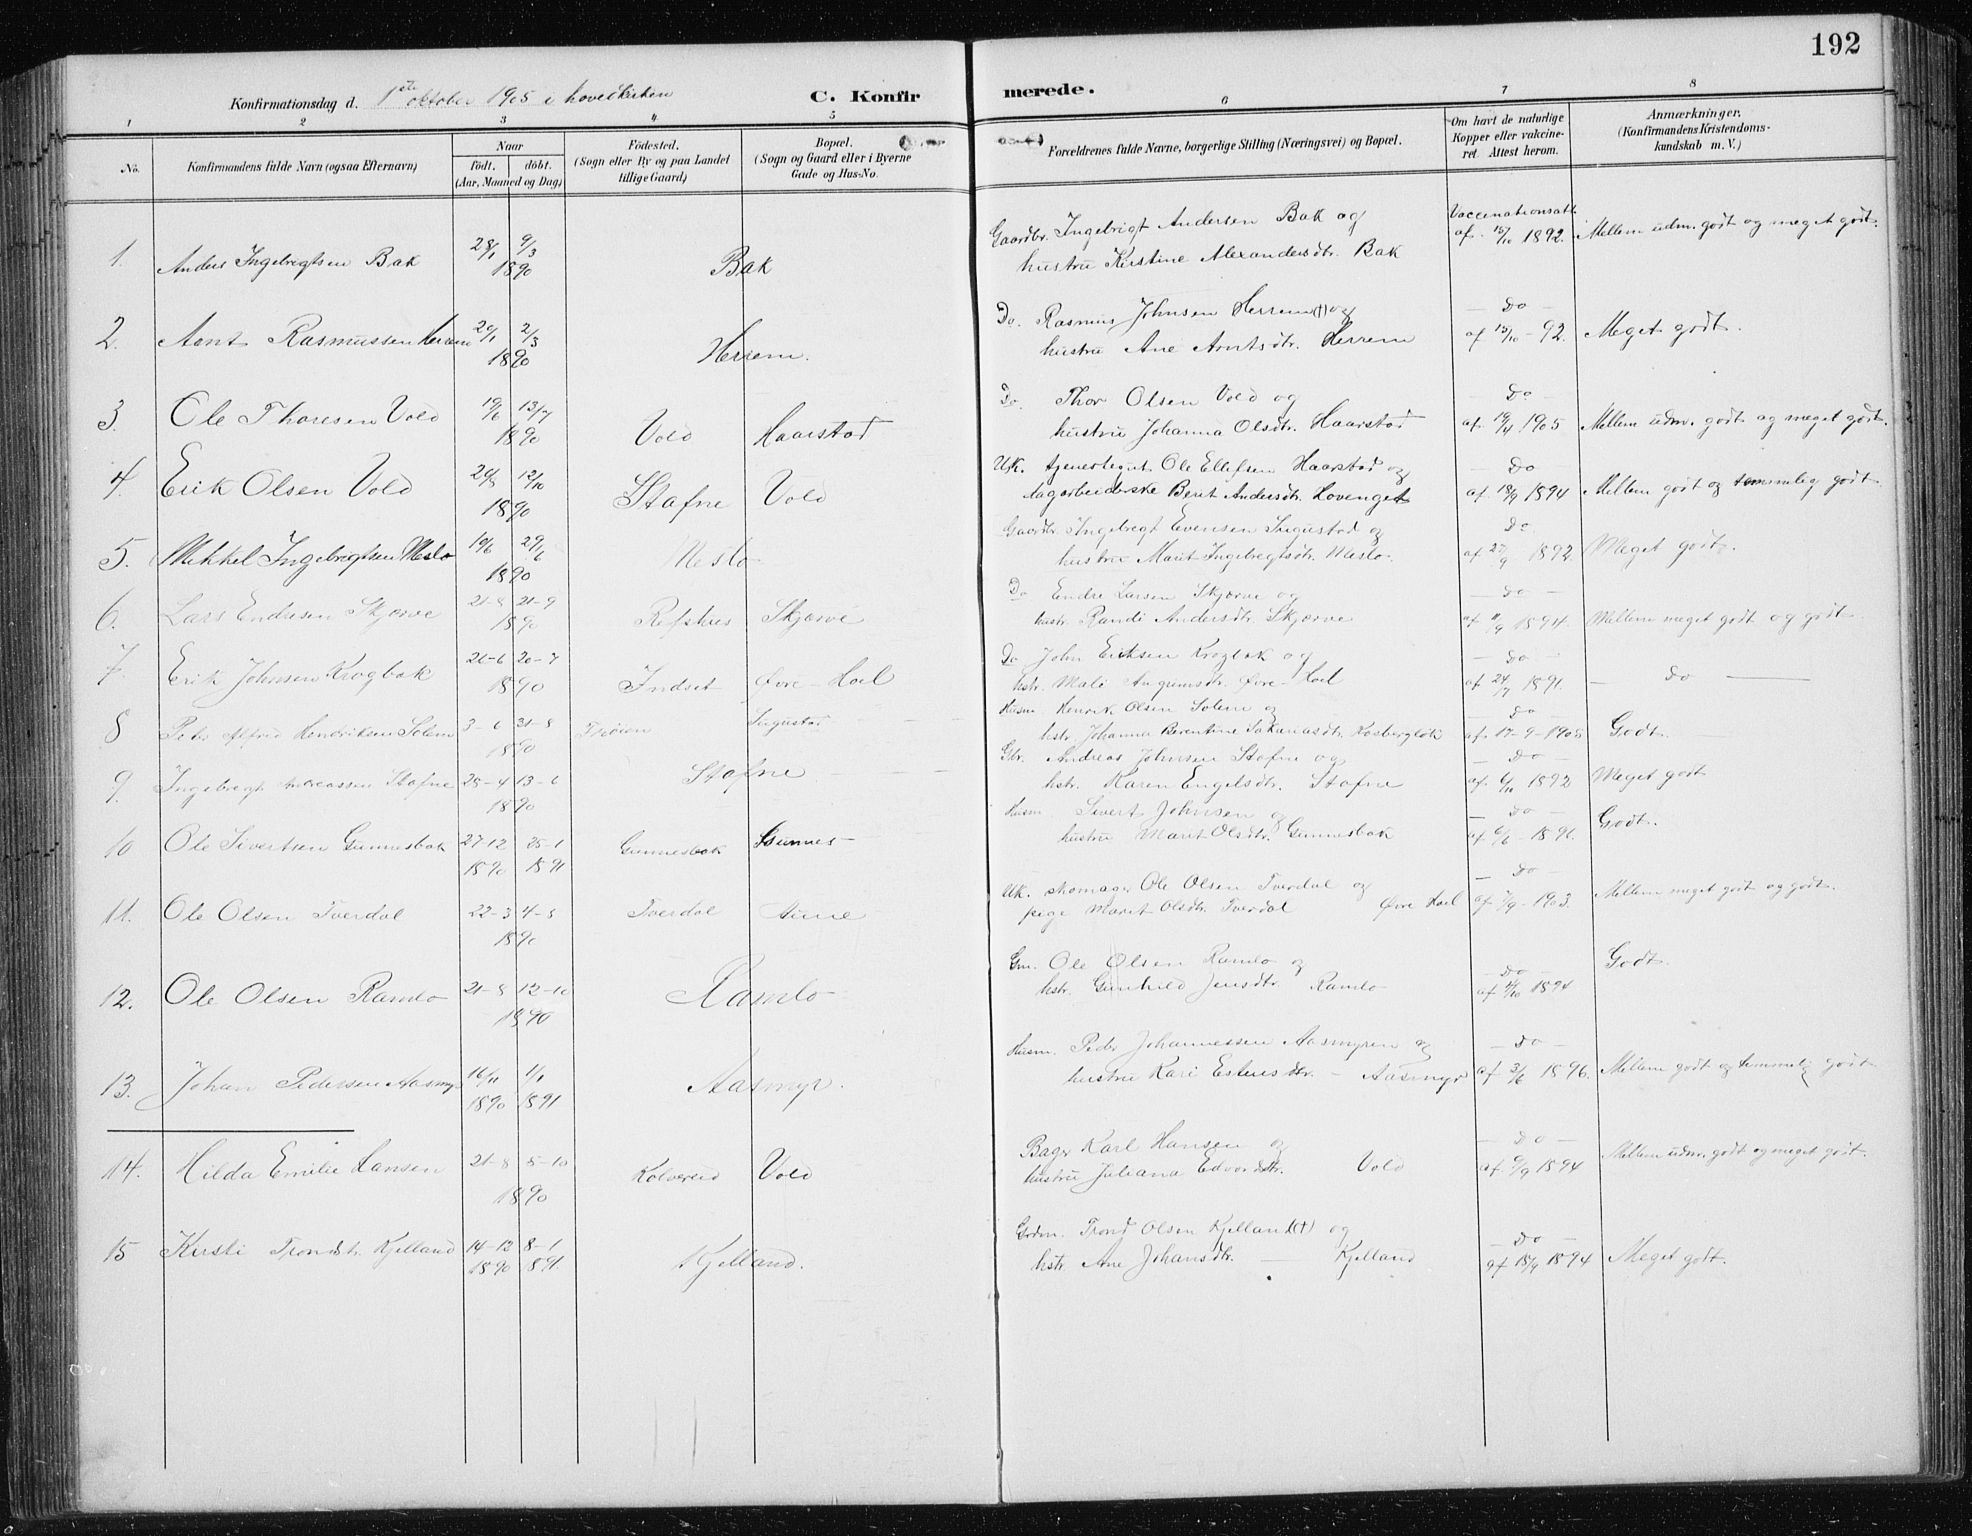 192
Konfirmationsdag d. 1ste oktober 1905 i hovedkirken C. Konfirmerede.
1 2 3 4 5 6 7 8
No. Konfirmandens fulde Navn (ogsaa Efternavn) Naar født. døbt. (Aar, Maaned og Dag) Fødested. (Sogn eller By og paa Landet tillige Gaard) Bopæl. (Sogn og Gaard eller i Byerne Gade og Hus-No. Forældrenes fulde Navne, borgerlige Stilling (Næringsvei) og Bopæl. Om havt de naturlige Kopper eller vakcineret. Attest herom. Anmærkninger, (Konfirmandens Kristendomskundskab m. V.)
Gaardbr. Ingebrigt Andersen Bak og Vaccinationsatt.
1. Anders Ingebrigtsen Bak 28/1 9/3 1890 Bak hustru Kirstine Alexandersdtr. Bak af 15/10 1892. Mellem udm. godt og meget godt.
Do. Rasmus Johnsen Herrem (†) og — Do —
2. Arnt Rasmussen Herrem 20/1 2/3 1890 Herrem. hustru Ane Arntsdtr. Herrem af 15/10 - 92. Meget godt.
Do. Thor Olsen Vold og — Do —
3. Ole Thoresen Vold 19/6 13/7 1890 Vold Haarstad hustru Johanna Olsdtr. Haarstad af 19/4 1905 Mellem udm. godt og meget godt.
Uk. tjenestegut Ole Ellefsen Haarstad og — Do —
4. Erik Olsen Vold 12/10 1890 Stafne Vold dagarbeiderske Berit Andersdtr. Lovenget af 18/9 1894 Mellem godt og temmelig godt
Gaardbr. Ingebrigt Evensen Ingustad og Do.
5. Mikkel Ingebrigtsen Meslo 10/6 29/6 1890 Meslo hustru Marit Ingebregtsdtr. Meslo. af 27/9 1892. Meget godt.
Do Endre Larsen Skjørve og — Do —
6. Lars Endresen Skjørve 21-8 21-9 1890 Refshus Skjørve hustr. Randi Andersdtr. Skjørve af 11/9 1894. Mellem meget godt og godt.
Do John Eriksen Krogbak og — Do —
7. Erik Johnsen Krogbak 26-6 20-7 1890 Indset Øvre-Hoel hstr. Mali Øvre-Hoel af 24/7 1891. — Do —
Husm. Henrik Olsen Solem og — Do —
8 Peder Alfred Hendriksen Solem 3-6 31-8 1890 Trøien Ingustad hstr. Johanna Berentine Sakariasdtr. af 17-9-1905 Godt.
Gbr. Andreas Johnsen Stafne og — Do —
9. Ingebregt Andreassen Stafne 25-4 13-6 1890 Stafne hstr. Karen Engelsdtr. Stafne af 6/10 1892 Meget godt
Husm. Sivert Johnsen og — Do —
10 Ole Sivertsen Gunnesbak 27-12 1890 25-1 1891 Gunnesbak Gunnes hustru Marit Olsdtr. Gunnesbak af 6/6 - 1896. Godt.
Uk. skomager Ole Olsen Tverdal og — Do —
11. Ole Olsen Tverdal 22-3 4-5 1890 Tverdal Aune pige Marit Olsdtr. Tverdal Øvre Hoel af 7/9 - 1903. Mellem meget godt og godt.
Gm. Ole Olsen Ramlo og — Do —
12. Ole Olsen Ramlo 21-8 12-10 1890 Ramlo hstr. Gunhild Jensdtr. Ramlo 1894 Godt.
Husm. Peder Johannessen Aasmyren og — Do —
13. Johan Pedersen Aasmyr 16/11 1890 1/1 1891 Aasmyr. hustru Kari Estensdtr. — Aasmyr af 3/6 1896. Mellem godt og temmelig godt
Bager Karl Hansen og — Do —
14. Hilda Emilie Hansen 21-8 5-10 1890 Kolvereid Vold hustru Juliana Edvardsdtr. Vold af 9/9 1894 Mellem udm. godt og meget godt.
Grdm. Trond Olsen Kjelland (†) og — Do —
15 Kirsti Trondsdtr. Kjelland 14-12 1890 8-1 1891. Kjelland. hstr. Ane Johansdtr. — Kjelland af 18/9 1894 Meget godt.